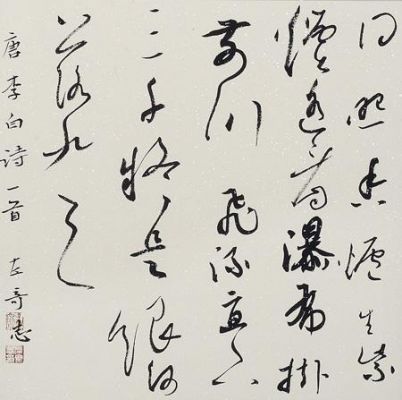 日照香爐生紫
煙遙看瀑布掛
前川飛流直下
三千疑是銀河
落九天
唐李白詩一首 左奇志